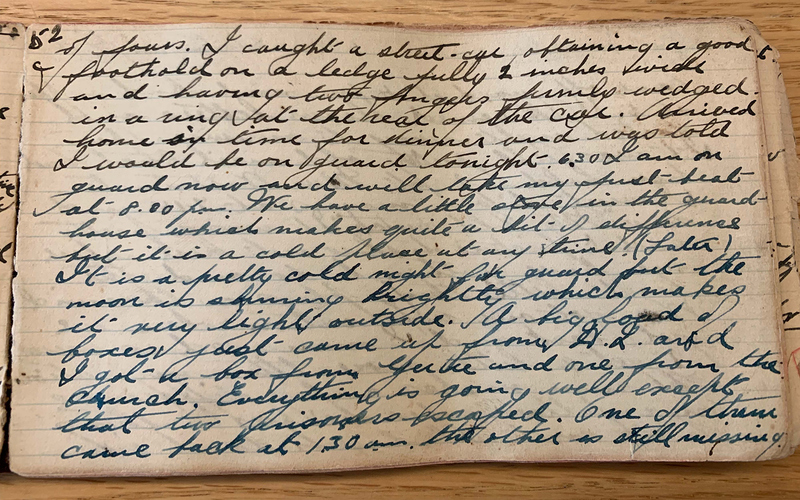 52
of fours. I caught a street-car obtaining a good
foothold on a ledge fully 2 inches wide
and having two fingers firmly wedged
in a ring at the rear of the car. Arrived
home in time for dinner and was told
I would be on guard tonight. 6.30 I am on
guard now and will take my first beat
at 8.00 pm. We have a little stove in the guard-
house which makes quite a bit of difference
but it is a cold place at any time. (Later)
It is a pretty cold night for guard but the
moon is shining brightly which makes
it very light outside. A big load of
boxes just came up from and
I got a box from Gertie and one from the
church. Everything is going well except
that two prisoners escaped. One of them
came back at 1.30 am. the other is still missing